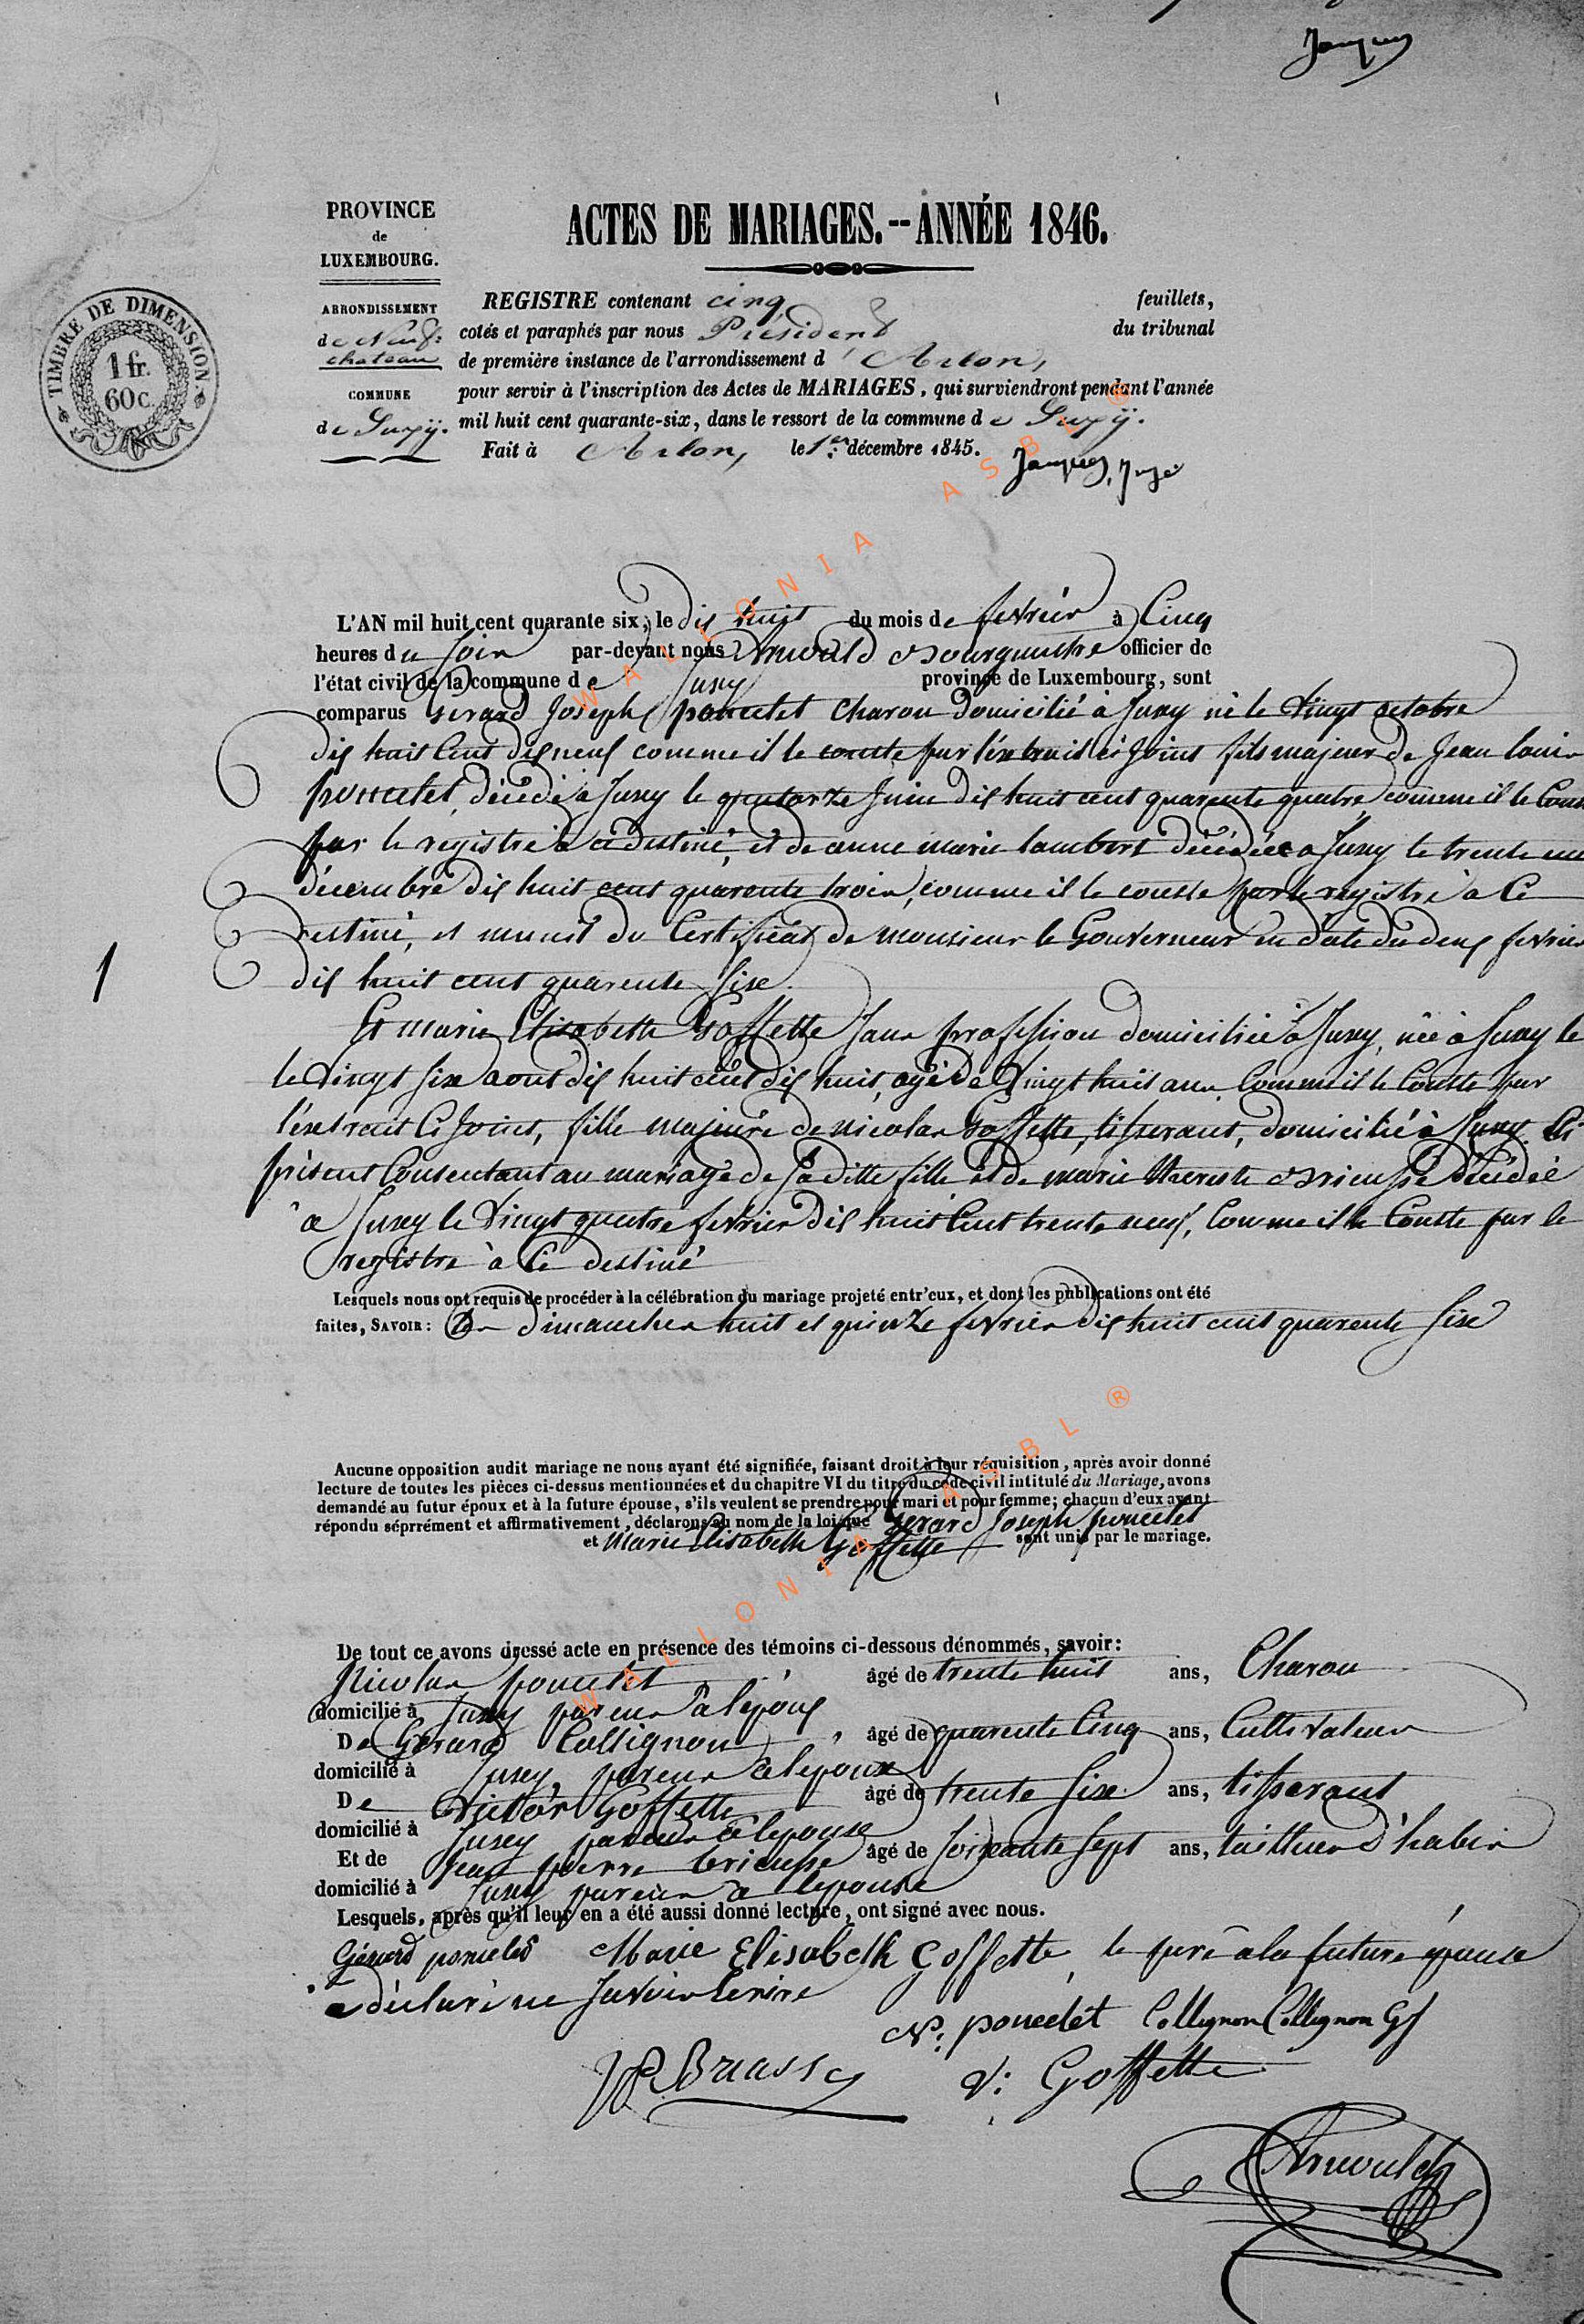 Jacques
PROVINCE
de
LUXEMBOURG.
ACTES DE MARIAGES.--ANNÉE 1846.
TIMBRE DE DIMENSION.
1 fr.
60 c.
ARRONDISSEMENT
de Neuf-
chateau
COMMUNE
de Suxÿ.
REGISTRE contenant cinq feuillets,
cotés et paraphés par nous Président du tribunal
de première instance de l'arrondissement d'Arlon,
pour servir à l'inscription des Actes de MARIAGES, qui surviendront pendant l'année
mil huit cent quarante-six, dans le ressort de la commune de Suxÿ.
Fait à Arlon, le 1er décembre 1845.
Jacques, Juge
L'AN mil huit cent quarante six, le dix huit du mois de fevrier à Cinq
heures du soir par-devant nous Arnould Bourguemestre officier de
l'état civil de la commune de Suxy province de Luxembourg, sont
comparus Gerard Joseph poncelet Charon domicilié à Suxy né le Vingt octobre
dix huit Cent dix neuf comme il le conste par l'extrait ci Joint fils majeur de Jean louis
poncelet, décédé à Suxy le quatorze Juin dix huit cent quarente quatre, comme il le Cons
par le registre à ce destiné, et de anne marie lambert décédée a Suxy le trente un
décembre dix huit cent quarente trois, comme il le conste par le registre à Ce
destiné, et munit du Certificat de monsieur le Gouverneur en date du deux fevrier
dix huit cent quarente sixe.
1
Et marie Elisabeth Goffette sans profession domiciliée à Suxy, née à Suxy le
le Vingt sixe aout dix huit cent dix huit, agée de Vingt huit ans Comme il le Conste par
l'extrait Ci Joint, fille majeure de nicolas Goffette, tisserant, domicilié à Suxy Ci
présent Consentant au mariage de sa ditte fille et de marie therese Brieusse décédée
a Suxy le Vingt quatre fevrier dix huit Cent trente neuf, Comme il le Conste par le
registre à Ce destiné
Lesquels nous ont requis de procéder à la célébration du mariage projeté entr'eux, et dont les publications ont été
faites, SAVOIR: Les dimanches huit et quinze fevrier dix huit cent quarente sixe
Aucune opposition audit mariage ne nous ayant été signifiée, faisant droit à leur réquisition, après avoir donné
lecture de toutes les pièces ci-dessus mentionnées et du chapitre VI du titre du code civil intitulé du Mariage, avons
demandé au futur époux et à la future épouse, s'ils veulent se prendre pour mari et pour femme; chacun d'eux ayant
répondu séprrément et affirmativement, déclarons au nom de la loi que Gerard Joseph poncelet
et Marie Elisabeth Goffette sont unis par le mariage.
De tout ce avons dressé acte en présence des témoins ci-dessous dénommés, savoir:
Nicolas poncelet âgé de trente huit ans, Charon
domicilié à Suxy parens à l'epoux
De Gerard Collignon, âgé de quarente Cinq ans, Cultivateur
domicilié à Suxy, parens à l'epoux
De Victor Goffette âgé de trente sixe ans, tisserant
domicilié à Suxy parens à l'epouse
Et de Jean pierre brieusse âgé de soixante sept ans, tailleur d'habis
domicilié à Suxy parens a l'epouse
Lesquels, après qu'il leur en a été aussi donné lecture, ont signé avec nous.
Gérard poncelet Marie Elisabeth Goffette, le pere à la future epouse
a déclaré ne savoir Ecrire
N: poncelet Collignon Collignon Gd
V: Goffette
Arnould
WALLONIA ASBL ®
WALLONIA ASBL ®